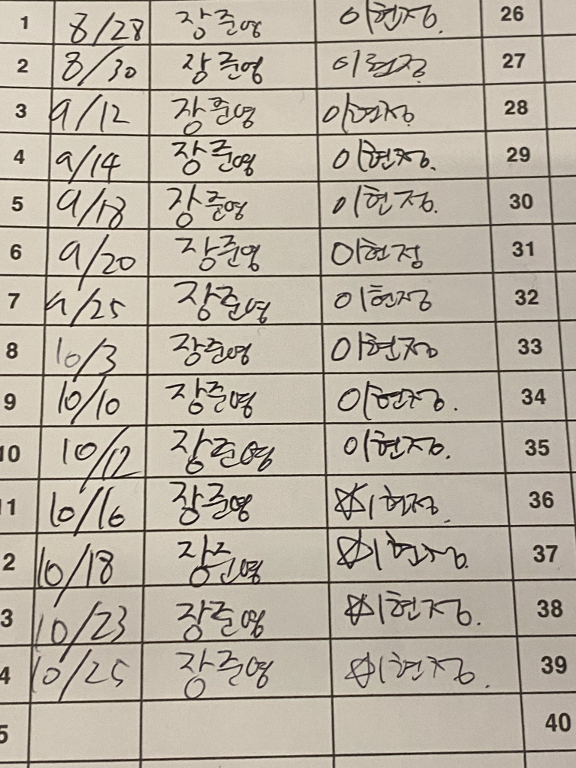 1 8/28 장준영 이현정. 26
2 8/30 장준영 이현정. 27
3 9/12 장준영 이현정. 28
4 9/14 장준영 이현정. 29
5 9/18 장준영 이현정. 30
6 9/20 장준영 이현정 31
7 9/25 장준영 이현정 32
8 10/3 장준영 이현정 33
9 10/10 장준영 이현정. 34
10 10/12 장준영 이현정. 35
1 10/16 장준영 ☆이현정. 36
2 10/18 장준영 ☆이현정. 37
3 10/23 장준영 ☆이현정. 38
4 10/25 장준영 ☆이현정. 39
5 40